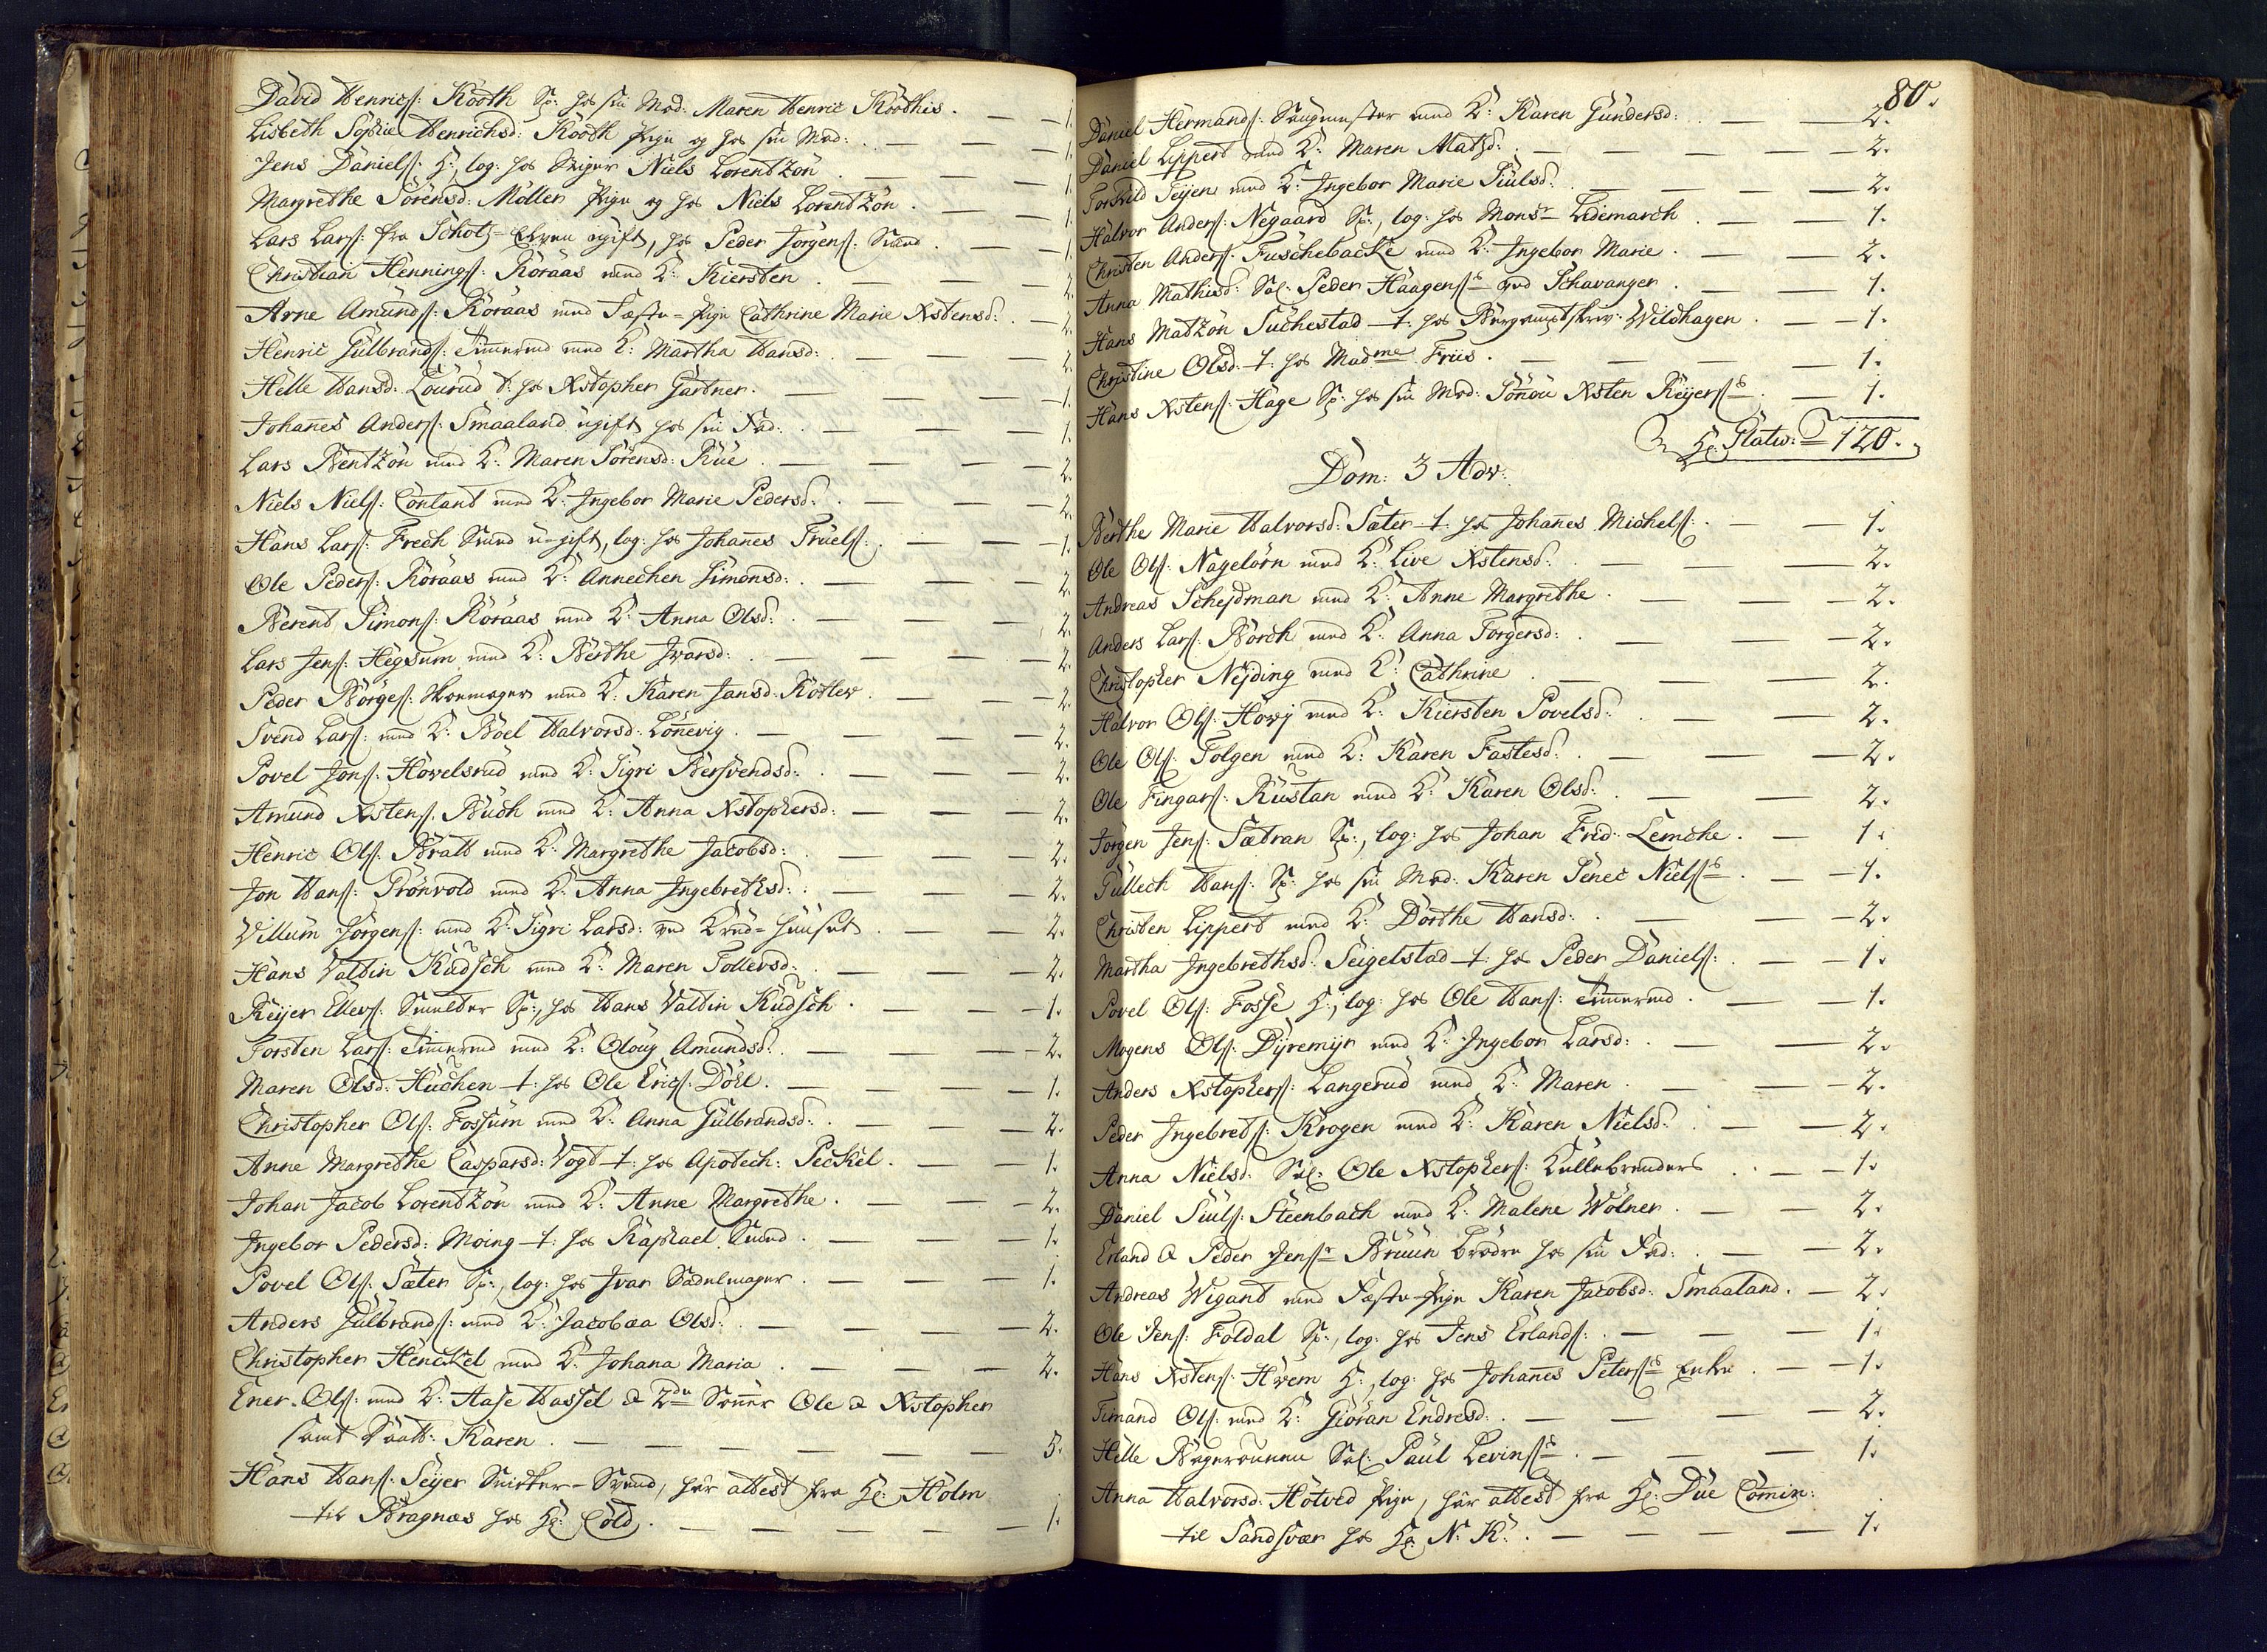 David Henrics: Kooth Sp: hos sin Mod: Maren Henric Koothis. — — 1.
Lisbeth Sophie Henrichsd: Kooth Pige og hos sin Mod: . — — — 1.
Jens Daniels: H:, log: hos Stiger Niels Lorentzön . — — — 1.
Margrethe Sörensd: Möller Pige og hos Niels Lorentzön . — — 1.
Lars Lars: fra Schotz-Elven ugift, hos Peder Jörgens: Svend . — — 1.
Christian Hennings: Röraas med K: Kiersten . — — — 2.
Arne Amunds: Röraas med Fæste-Pige Cathrine Marie Xstensd: . — 2.
Henric Gulbrands: Timermd med K: Martha Hansd: . — — — 2.
Helle Hansd: Lourud t: hos Xstopher Gartner. — — — 1.
Johanes Anders: Smaaland ugift hos sin Fad: . — — — 1.
Lars Bentzön med K: Maren Sörensd: Rüe . — — — 2.
Niels Niels: Contant med K: Ingebor Marie Pedersd: . — — — 2.
Hans Lars: Frech Svend u-gift, log: hos Johanes Truels: . — — 1.
Ole Peders: Röraas med K: Annechen Simonsd: . — — — 2.
Berent Simons: Röraas med K: Anna Olsd: . — — — 2.
Lars Jens: Hegsum med K: Berthe Ivarsd: . — — — 2.
Peder Börges: Skoemager med K: Karen Jansd: Kotlev . — — 2.
Svend Lars: med K: Boel Halvorsd: Lönnevig . — — — 2.
Povel Jons: Hovelsrud med K: Sigri Bersvendsd: . — — — 2.
Amund Xstens: Buch med K: Anna Xstophersd: — — — 2.
Henric Ols: Bratt med K: Margrethe Jacobsd: . — — — 2.
Jon Hans: Grönvold med K: Anna Ingebrethsd: . — — — 2.
Villum Jörgens: med K: Sigri Larsd: ved Krud-Huuset . — — 2.
Hans Valtin Kudsch med K: Maren Tollevsd: . — — — 2.
Reijer Ellevs: Smelter Sp:, hos Hans Valtin Kudsch . — — — 1.
Torsten Lars: Timermd med K: Oloug Amundsd: . — — — 2.
Maren Olsd: Huchen t: hos Ole Erics: Döhl. — — — 1.
Christopher Ols: Fossum med K: Anna Gulbrandsd: . — — — 2.
Anne Margrethe Caspersd: Vogt t: hos Apotech: Peckel. — — 1.
Johan Jacob Lorentzön med K: Anne Margrethe . — — — 2.
Ingebor Pedersd: Moing t: hos Raphael Smed . — — — 1.
Povel Ols: Sæter Sp:, log: hos Ivar Sadelmager . — — — 1.
Anders Gulbrands: med K: Jacobæa Olsd: . — — — 2.
Christopher Henckel med K: Johana Maria . — — — 2.
Ener Ols: med K: Aase Hassel & 2de Sönner Ole & Xstopher
samt Daatt: Karen . — — — — — 5.
Hans Hans: Seyer Snidker-Svend, har attest fra Hr: Holm
til Bragnæs hos Hr: Cold. — — — — 1.
80.
Daniel Hermands: Saugmester med K: Karen Gundersd: . — 2.
Daniel Lippert med K: Maren Matzd: . — — — 2.
Torkild Teijen med K: Ingebor Marie Siulsd: . — — 2.
Halvor Anders: Negaard Sp:, log: hos Monsr Lidemarch . — 1.
Christen Anders: Fuschebacke med K: Ingebor Marie . — — 2.
Anna Mathisd: Sal: Peder Haagenss ved Schavanger . — 1.
Hans Matzön Suchestad t: hos Bergamptskriv: Wildhagen . — 1.
Christine Olsd: t: hos Madme Friis . — — — 1.
Hans Xstens: Hage Sp: hos sin Mod: Sönou Xsten Reijerss . — 1.
Hr: Platou: 120.
Dom: 3 Adv:
Berthe Marie Halvorsd: Sæter t: hos Johanes Michels: . — 1.
Ole Ols: Nagelörn med K: Live Xstensd: . — — — 2.
Andreas Schejdman med K: Anne Margrethe . — — 2.
Anders Lars: Borch med K: Anna Torgersd: . — — 2.
Christopher Neijding med K: Cathrine . — — — 2.
Halvor Ols: Hovj med K: Kiersten Povelsd: . — — 2.
Ole Ols: Tolgen med K: Karen Fastesd: . — — — 2.
Ole Fingars: Rustan med K: Karen Olsd: . — — 2.
Jörgen Jens: Sætran Sp:, log: hos Johan Frid: Lemche . — 1.
Gullech Hans: Sp: hos sin Mod: Karen Senec Nielss . — 1.
Christen Lippert med K: Dorthe Hansd: . — — 2.
Martha Ingebrethsd: Seigelstad t: hos Peder Daniels: . — 1.
Povel Ols: Fosse H:, log: hos Ole Hans: Timermd . — — 1.
Mogens Ols: Dyremijr med K: Ingebor Larsd: . — — 2.
Anders Xstophers: Langerud med K: Maren . — — 2.
Peder Ingebrets: Krogen med K: Karen Nielsd: . — — 2.
Anna Nielsd: Sal: Ole Xstophers: Kullebrenders . — 1.
Daniel Siuls: Steenbach med K: Malene Wölner . — — 2.
Erland & Peder Jensr Bruun brödre hos sin Fad: . — 2.
Andreas Wigant med Fæste-Pige Karen Jacobsd: Smaaland . — 2.
Ole Jens: Foldal Sp:, log: hos Jens Erlands: . — — 1.
Hans Xstens: Hvem H:, log: hos Johanes Peterss Enke . — 1.
Timand Ols: med K: Giöran Endresd: . — — — 2.
Helle Sal: Paul Levinss . — — — 1.
Anna Halvorsd: Hotved Pige, har attest fra Hr: Due Comin:
til Sandsvær hos Hr: N: K: . — — — 1.